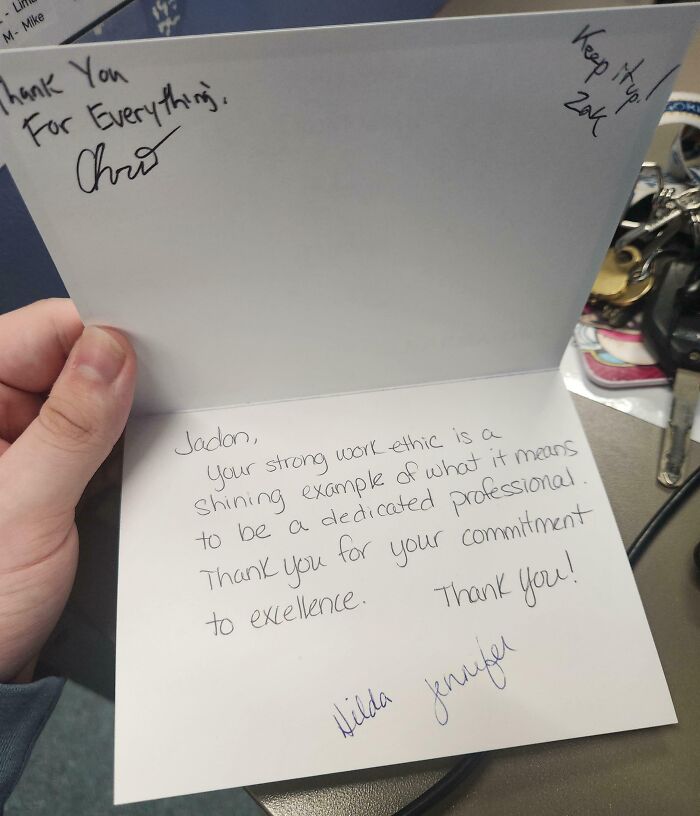 M- Mike
Thank You
For Everything.
Keep it up!
Zak
Jadon,
Your strong work ethic is a
shining example of what it means
to be a dedicated professional.
Thank you for your commitment
to excellence. Thank You!
Hilda Jennifer